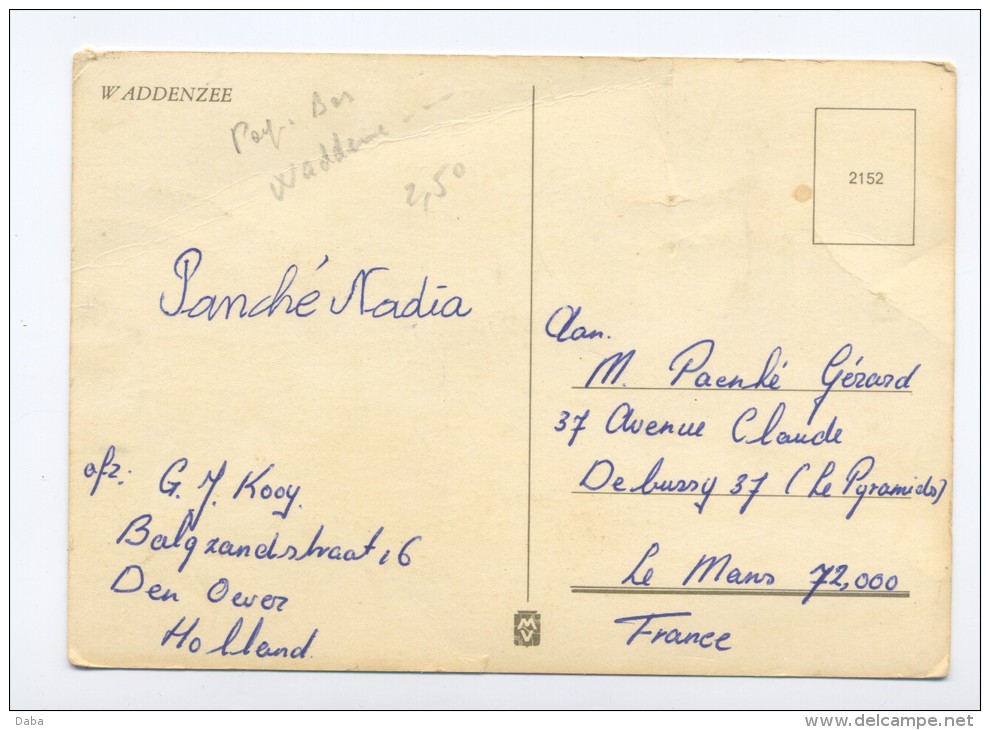 WADDENZEE
Pays-Bas
Waddenzee
2,50
Panché Nadia
afz: G. J. Kooy.
Balgzandstraat 16
Den Oever
Holland.
2152
Aan.
M. Paenhé Gérard
37 Avenue Claude
Debussy 37 (Le Pyramids)
Le Mans 72,000
France
MV
Daba
www.delcampe.net